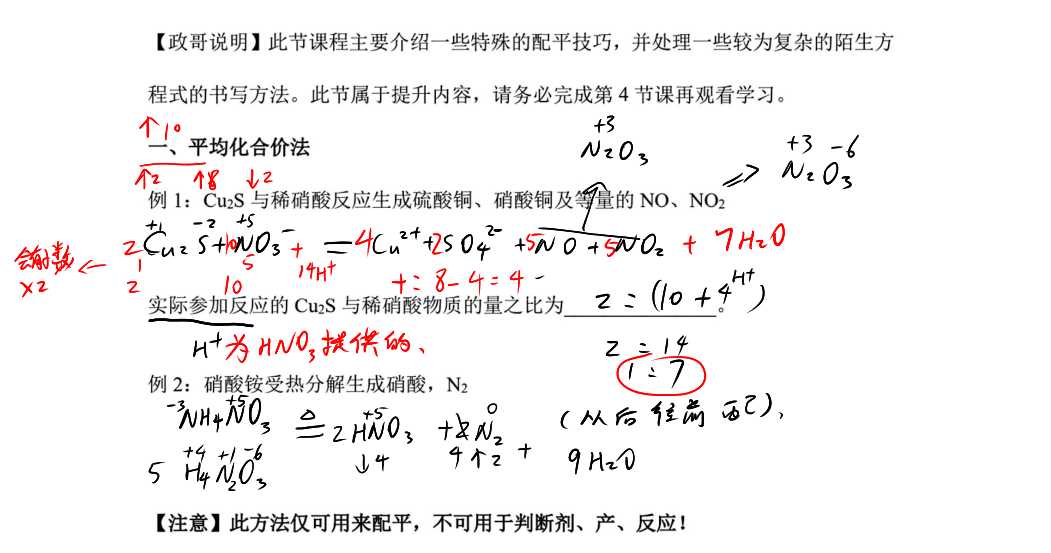 【政哥说明】此节课程主要介绍一些特殊的配平技巧，并处理一些较为复杂的陌生方
程式的书写方法。此节属于提升内容，请务必完成第 4 节课再观看学习。
↑10
+3
N₂O₃
⇒
+3 -6
N₂O₃
一、平均化合价法
↑2 ↑8 ↓2
例 1：Cu₂S 与稀硝酸反应生成硫酸铜、硝酸铜及等量的 NO、NO₂
+1 -2 +5
2Cu₂S+10NO₃⁻ + 14H⁺ = 4Cu²⁺+2SO₄²⁻ +5NO+5NO₂ + 7H₂O
×2 ← 1 5
2 10
+：8-4=4
实际参加反应的 Cu₂S 与稀硝酸物质的量之比为 2：(10+4 H⁺) 。
H⁺为HNO₃提供的、
2：14
1：7
例 2：硝酸铵受热分解生成硝酸，N₂
-3 +5 +5 0
NH₄NO₃ ≜ 2HNO₃ + N₂ （从后往前配）、
+4 +1 -6
5 H₄N₂O₃ ↓4 4↑2 + 9H₂O
【注意】此方法仅可用来配平，不可用于判断剂、产、反应！